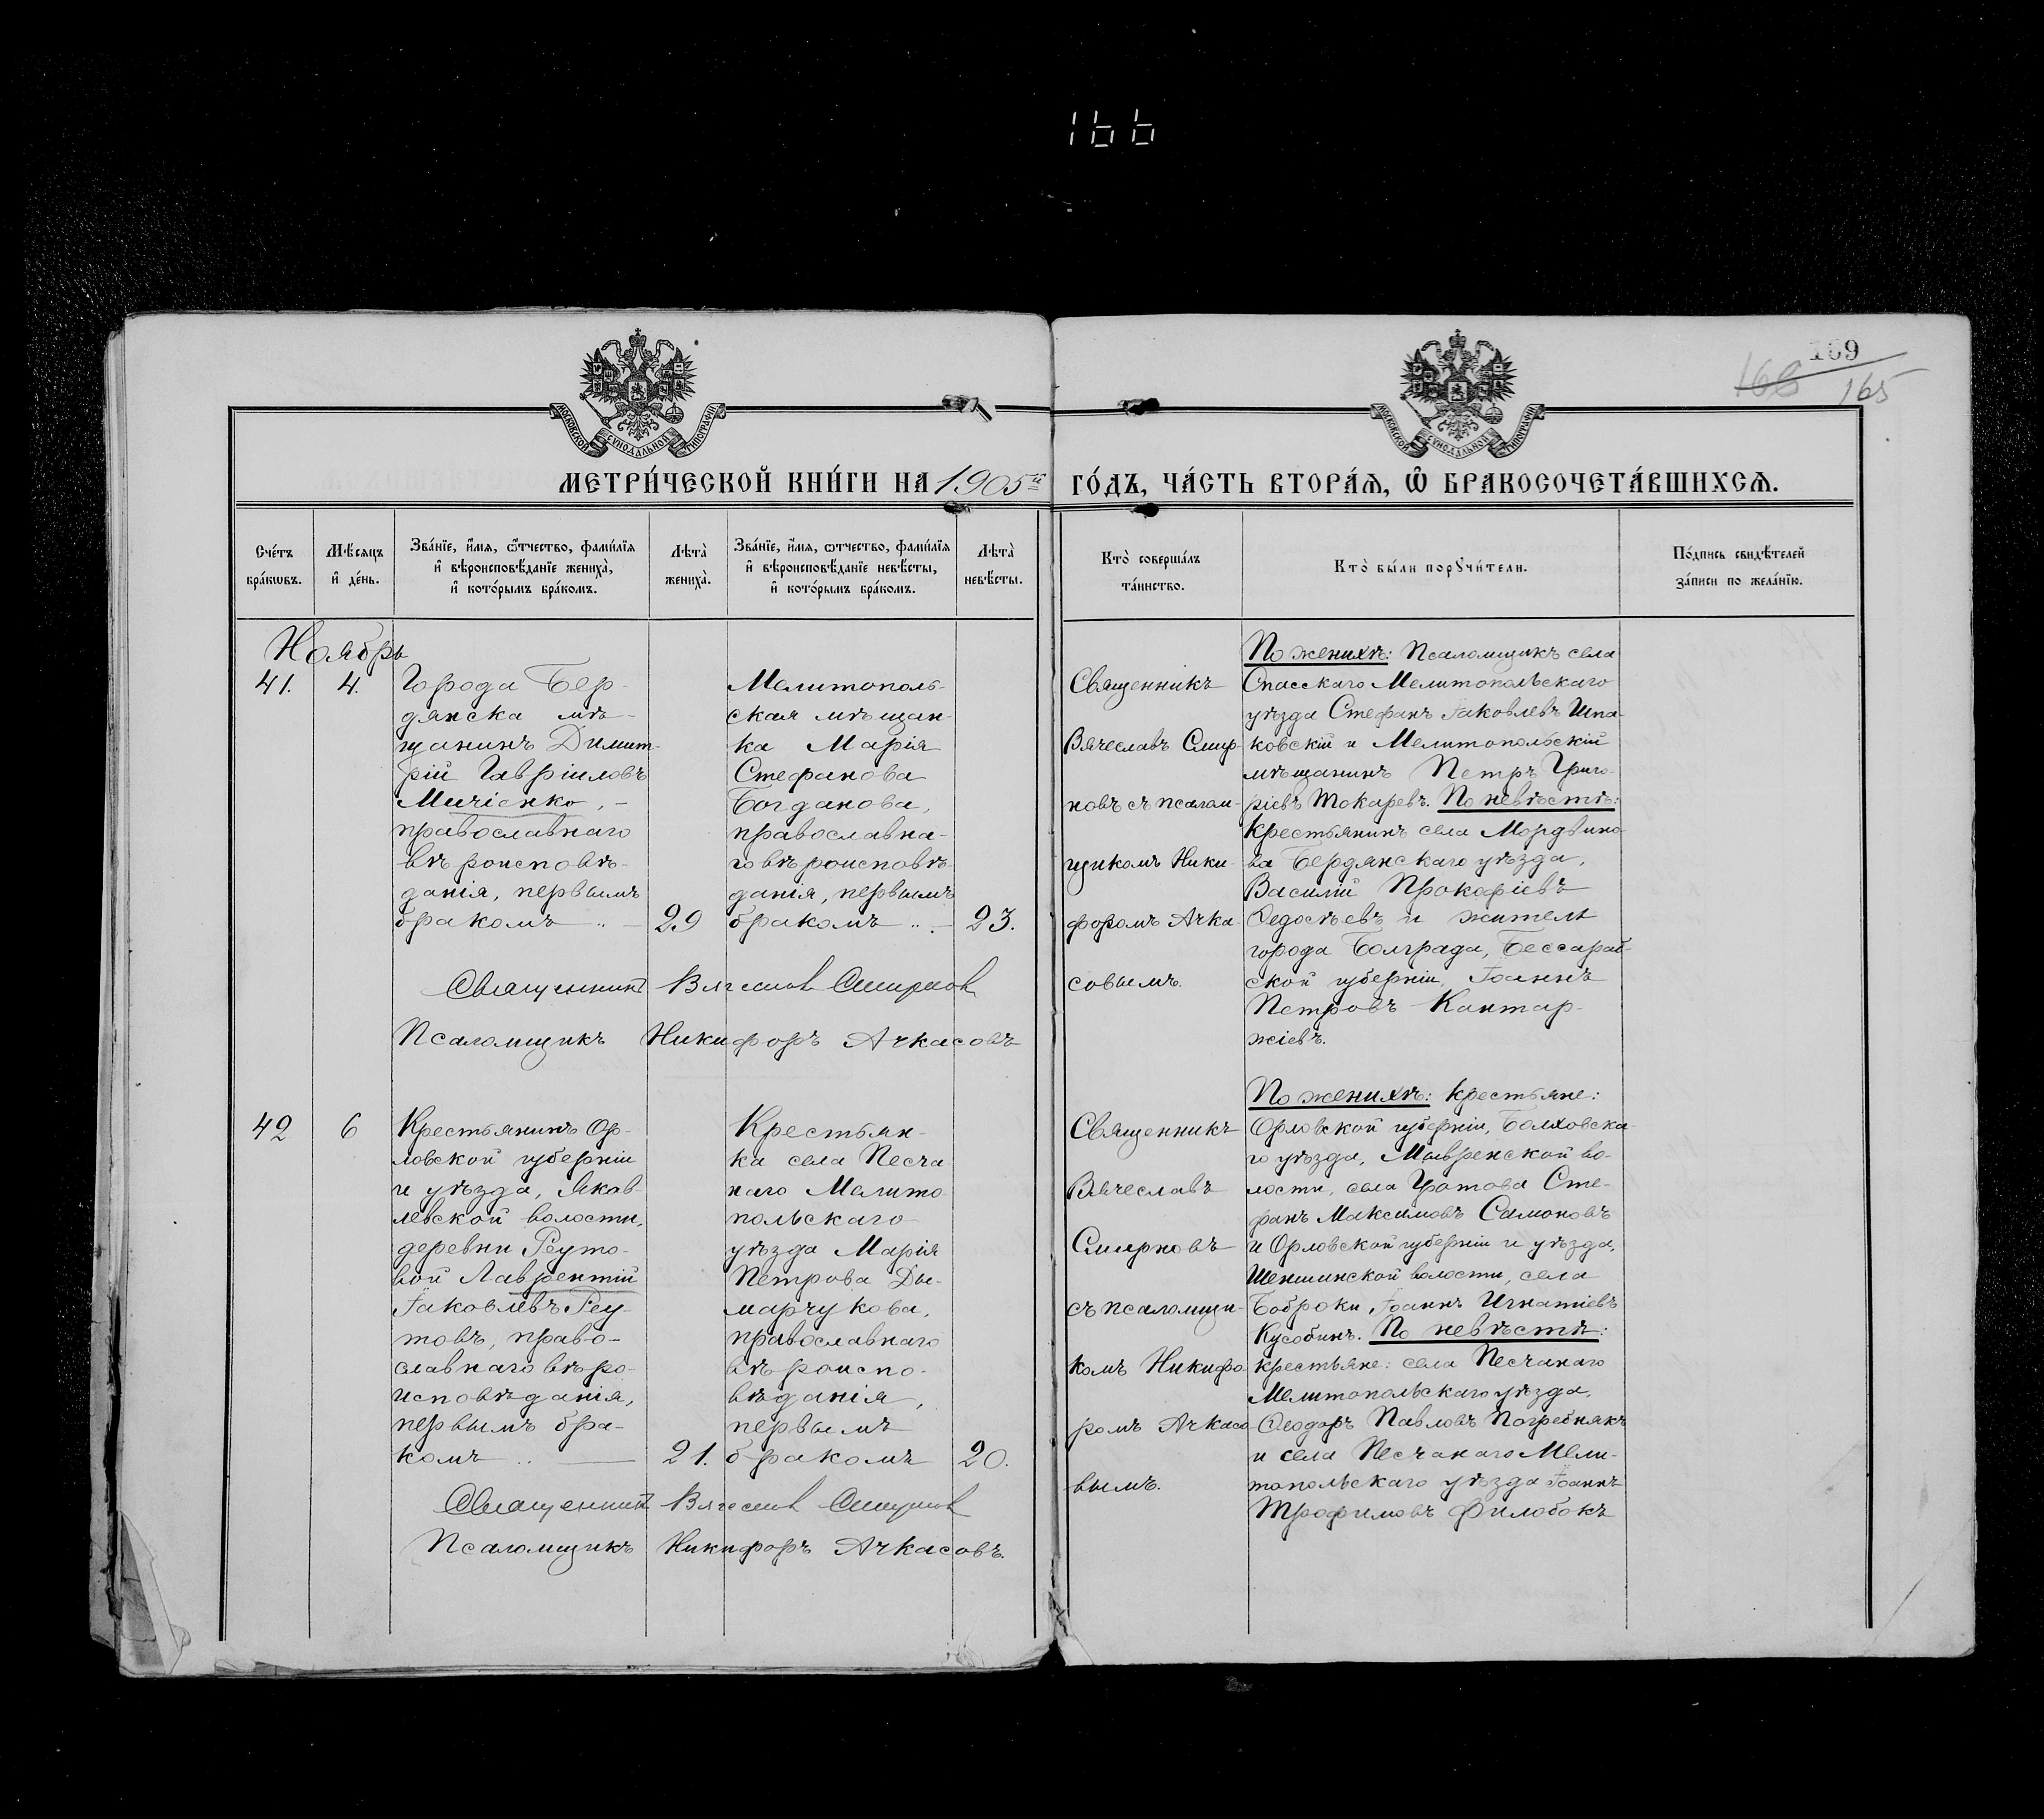 166
169
168 165
МОСКОВСКОЙ СУНОДАЛЬНОЙ ТИПОГРАФІИ
МОСКОВСКОЙ СУНОДАЛЬНОЙ ТИПОГРАФІИ
МЕТРИ́ЧЕСКОЙ КНИ́ГИ НА 1905й ГО́ДЪ, ЧА́СТЬ ВТОРА́Ѧ, Ѽ БРАКОСОЧЕТА́ВШИХСѦ.
Сче́тъ
бра́кѡвъ.
Мѣ́сѧцъ
и҆ де́нь.
Зва́нїе, и҆́мѧ, ѻ҆́тчество, фами́лїѧ
и҆ вѣроисповѣ́данїе жениха̀,
и҆ кото́рымъ бра́комъ.
Лѣта̀
жениха̀.
Зва́нїе, и҆́мѧ, ѻ҆́тчество, фами́лїѧ
и҆ вѣроисповѣ́данїе невѣ́сты,
и҆ кото́рымъ бра́комъ.
Лѣта̀
невѣ́сты.
Кто̀ соверша́лъ
та́инство.
Кто̀ бы́ли порꙋчи́тели.
По́дпись свидѣ́телей
за́писи по жела́нїю.
Ноябрь
41.
4.
Города Бер-
дянска мѣ-
щанинъ Димит-
рій Гавріиловъ
Мичіенко,
православнаго
вѣроисповѣ-
данія, первымъ
бракомъ
29
Мелитополь-
ская мѣщан-
ка Марія
Стефанова
Богданова,
православна-
го вѣроисповѣ-
данія, первымъ
бракомъ
23.
Священникъ
Вячеславъ Смир-
новъ съ псалом-
щикомъ Ники-
форомъ Ачка-
совымъ.
По женихѣ: Псаломщикъ села
Спасскаго Мелитопольскаго
уѣзда Стефанъ Іаковлевъ Шпа-
ковскій и Мелитопольскій
мѣщанинъ Петръ Григо-
ріевъ Токаревъ. По невѣстѣ:
Крестьянинъ села Мордвино-
ва Бердянскаго уѣзда,
Василій Прокофіевъ
Ѳедосѣевъ и житель
города Болграда, Бессараб-
ской губерніи, Іоаннъ
Петровъ Кантар-
жіевъ.
Священникъ Вячеслав Смирнов
Псаломщикъ Никифоръ Ачкасовъ
42
6
Крестьянинъ Ор-
ловской губерніи
и уѣзда, Яков-
левской волости,
деревни Реуто-
вой Лаврентій
Іаковлевъ Реу-
товъ, право-
славнаго вѣро-
исповѣданія,
первымъ бра-
комъ
21.
Крестьян-
ка села Песча
наго Мелито
польскаго
уѣзда Марія
Петрова Ды-
марчукова,
православнаго
вѣроиспо-
вѣданія,
первымъ
бракомъ
20.
Священникъ
Вячеславъ
Смирновъ
съ псаломщи-
комъ Никифо
ромъ Ачкасо
вымъ.
По женихѣ: крестьяне:
Орловской губерніи, Болховска-
го уѣзда, во-
лости, села Сте-
фанъ Максимовъ Самоновъ
и Орловской губерніи и уѣзда,
Шеншинской волости, села
Боброки, Іоаннъ Игнатіевъ
Кусобинъ. По невѣстѣ:
крестьяне: села Песчанаго
Мелитопольскаго уѣзда,
Ѳеодоръ Павловъ Погребнякъ
и села Песчанаго Мели-
топольскаго уѣзда Іоаннъ
Трофимовъ Филобокъ
Священникъ Вячеслав Смирнов
Псаломщикъ Никифоръ Ачкасовъ.